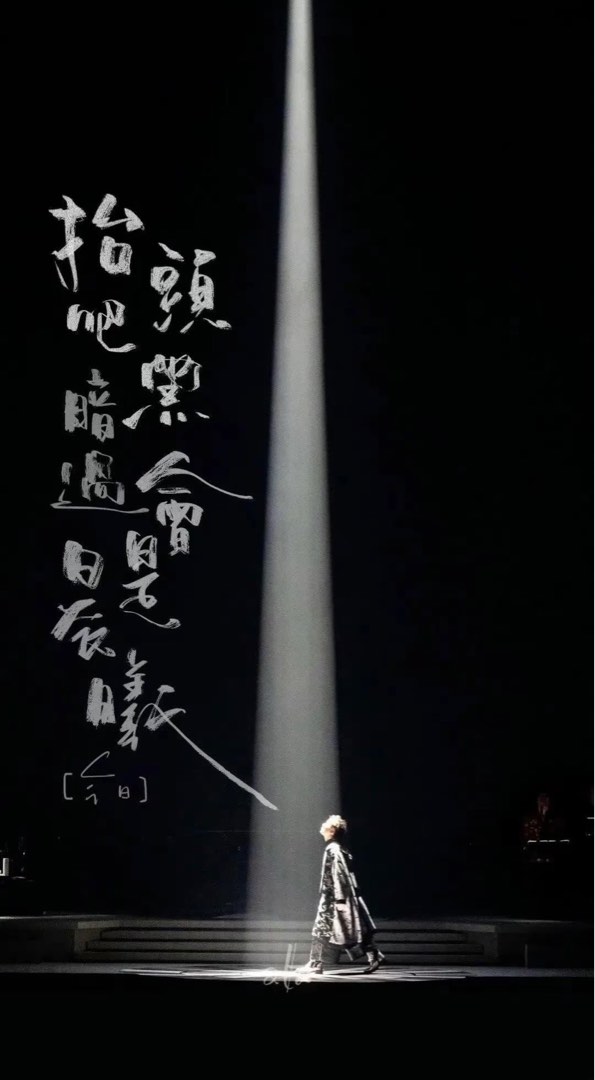 抬頭吧
黑暗過會是晨曦
[今日]